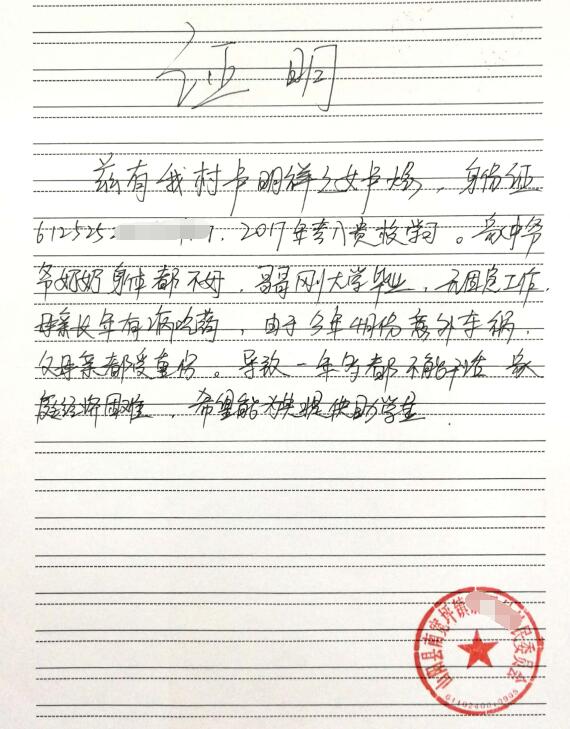 证明
兹有我村卢明祥之女卢焕，身份证
612525 2017年考入贵校学习。家中爷
爷奶奶身体都不好，哥哥刚大学毕业，无固定工作，
母亲长年有病吃药，由于今年四月份意外车祸，
父母亲都受重伤。导致一年多都不能干活 家
庭经济困难，希望能够提供助学金
山阳县南宽坪镇 民委员会